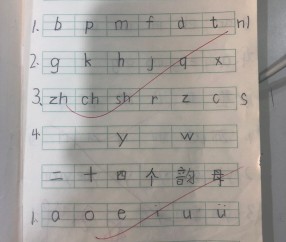 1. b p m f d t n l
2. g k h j q x
3. zh ch sh r z c s
4. y w
二十四个韵母
1. a o e i u ü